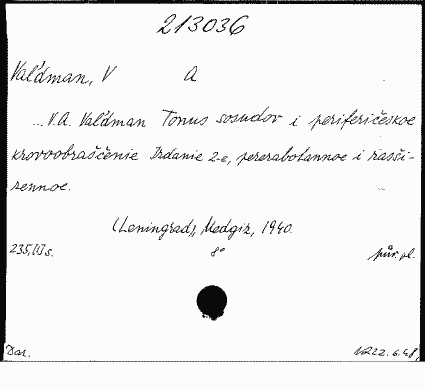 213036
Val'dman, V A
... V.A. Val'dman Tonus sosudov i periferičeskoe
krovoobraščenie Izdanie 2-e, pererabotannoe i rasši-
rennoe.
(Leningrad), Medgiz, 1940.
235,[1]s. 8° pův. pl.
Dar. 22.6.48,